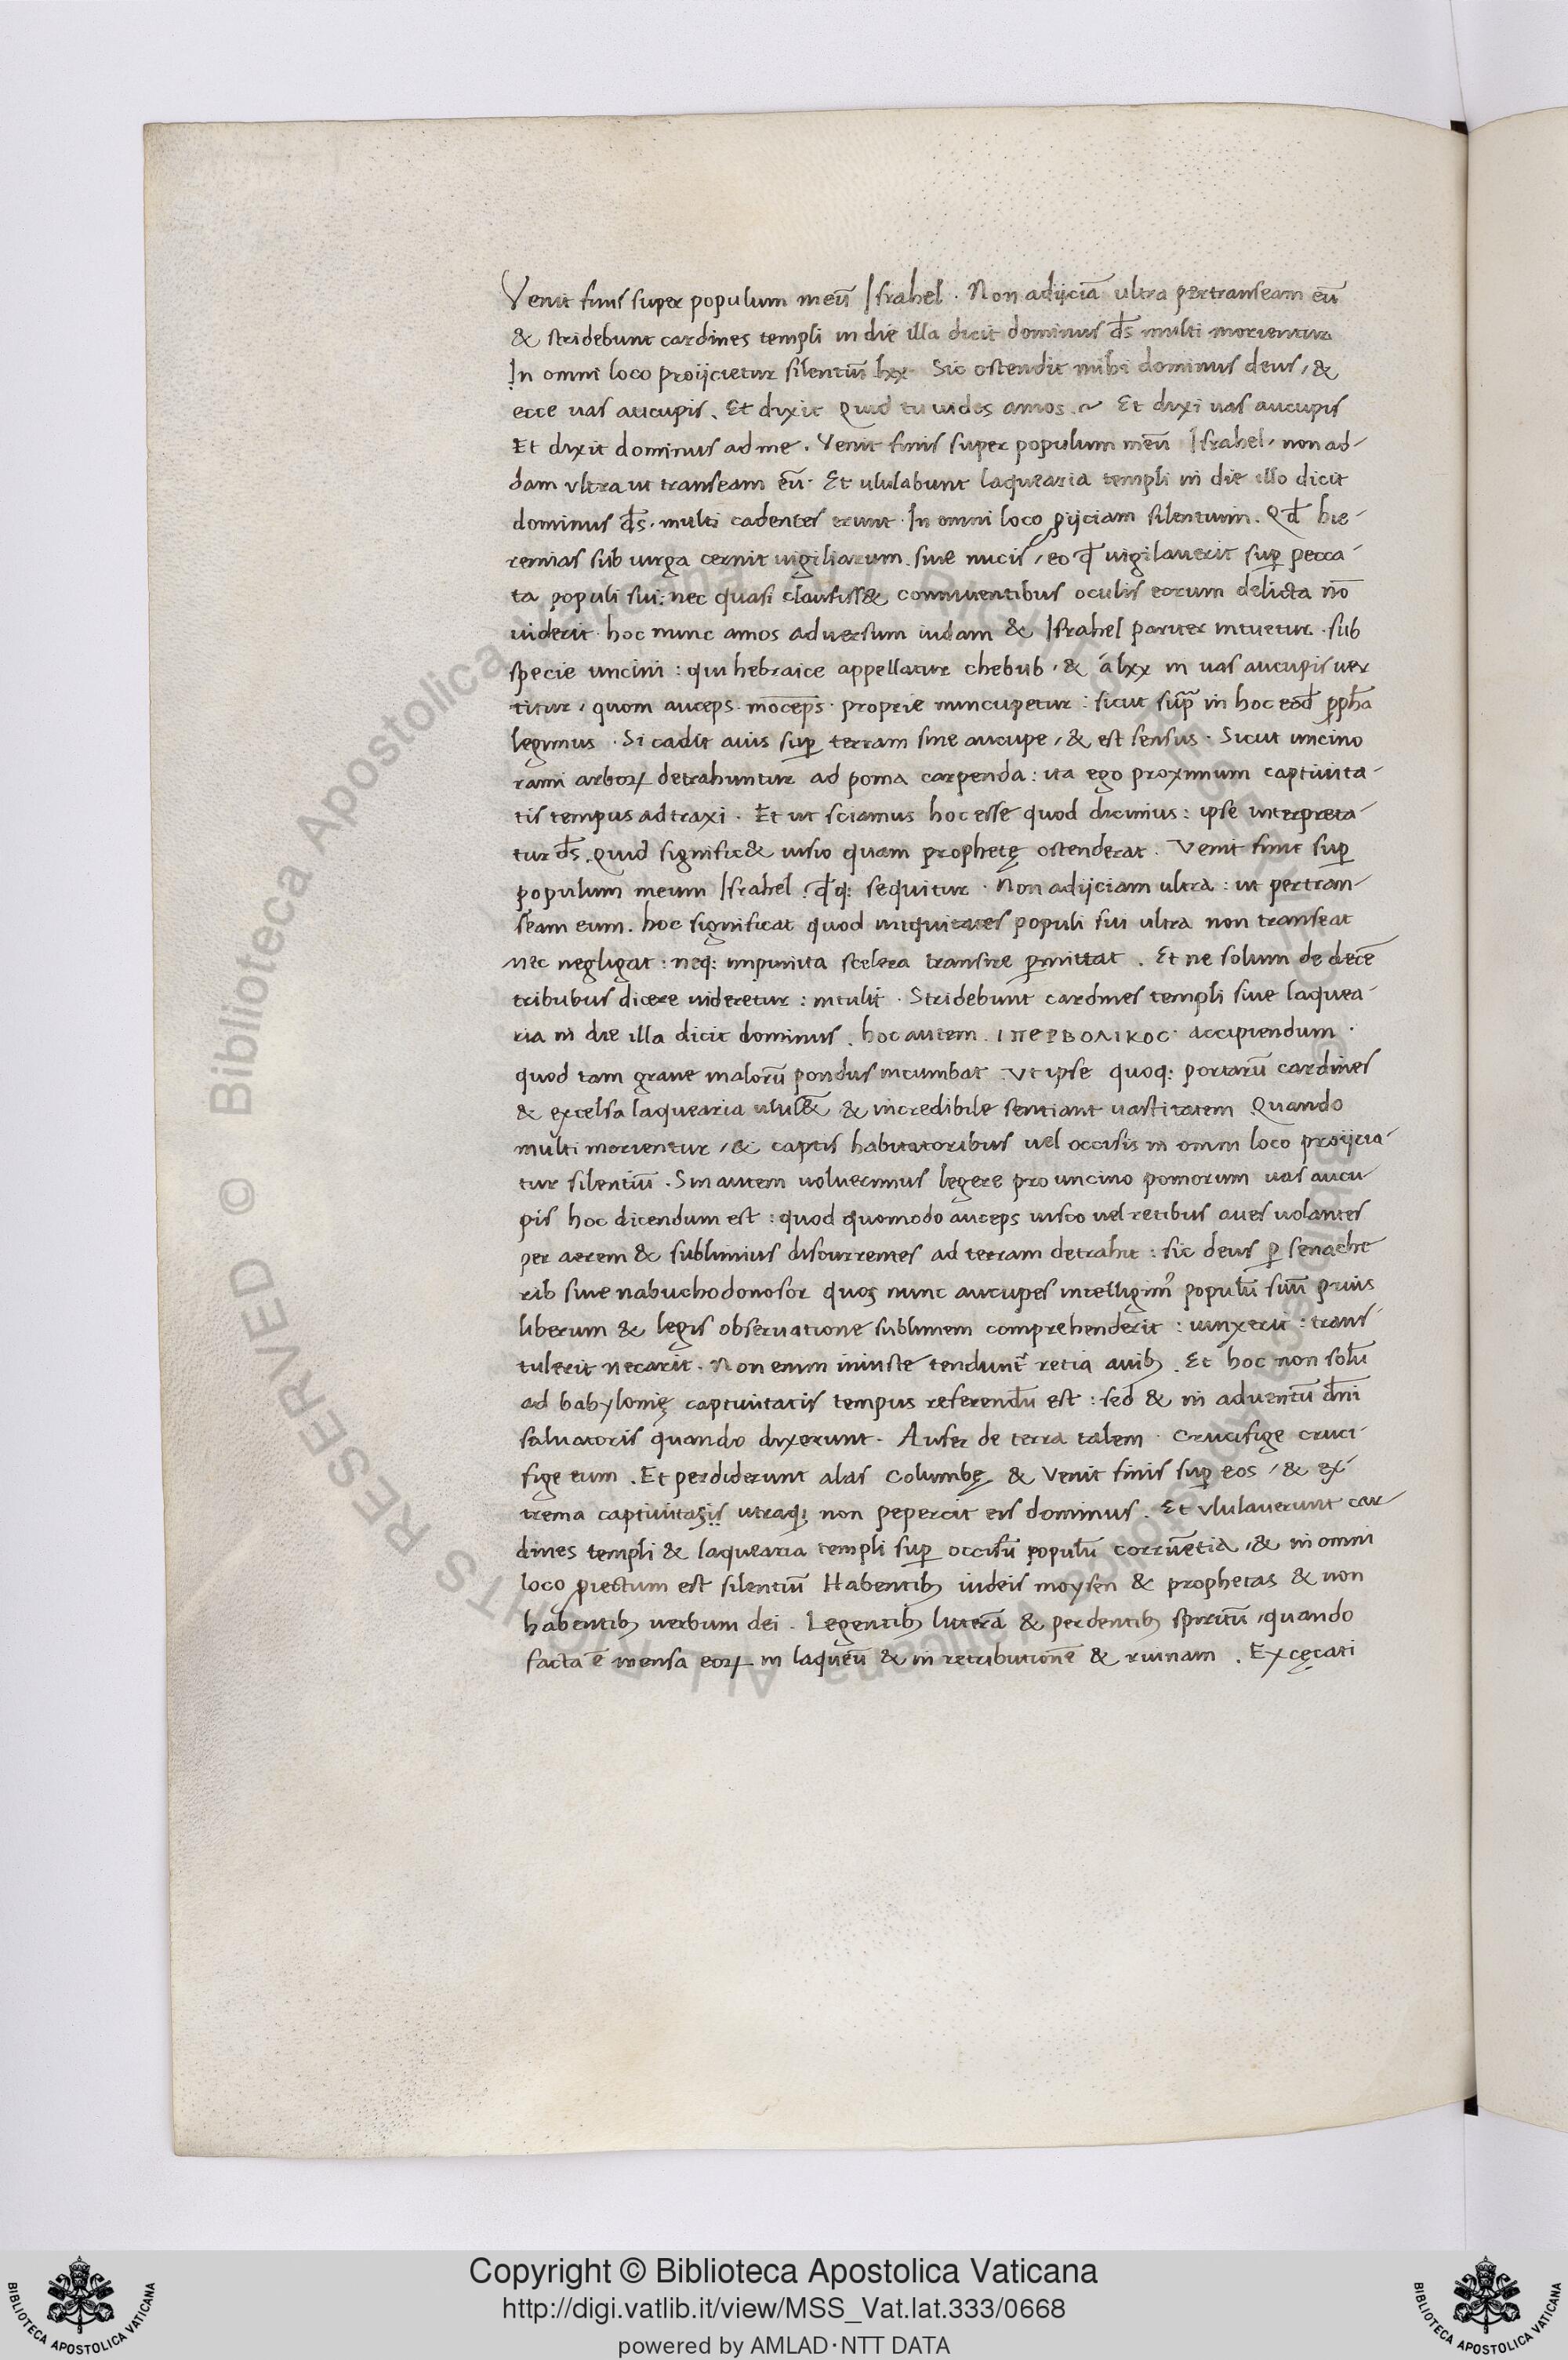 Venit finis super populum meū Israhel . Non adijciā ultra pertranseam eū
& stridebunt cardines templi in die illa dicit dominus d̄s multi morientur
In omni loco proijcietur silentiū lxx Sic ostendit mihi dominus deus, &
ecce uas aucupis . Et dixit Quid tu uides amos .~ Et dixi uas aucupis
Et dixit dominus ad me . Venit finis super populum meū Israhel , non ad-
dam vltra ut transeam eū . Et ululabunt laquearia templi in die illo dicit
dominus d̄s . multi cadentes erunt . In omni loco ꝓijciam silentium . Qd̄ hie-
remias sub uirga cernit uigiliarum . siue nucis , eo ꝙ uigilauerit suꝑ pecca-
ta populi sui : nec quasi clausiss& conniuentibus oculis eorum delicta nō
uiderit . hoc nunc amos aduersum iudam & Israhel pariter intuetur . sub
specie uncini : qui hebraice appellatur chebub , & á lxx in uas aucupis uer
titur , quom auceps . mōceps . proprie nuncupetur : sicut sup̄ in hoc eōd ꝓpħa
legimus . Si cadit auis suꝑ terram sine aucupe , & est sensus . Sicut uncino
rami arboꝝ detrahuntur ad poma carpenda : ita ego proximum captiuita-
tis tempus adtraxi . Et ut sciamus hoc esse quod dicimus : ipse interpreta-
tur d̄s . Quid signific& uisio quam prophetę ostenderat . Venit finit suꝑ
populum meum Israhel . ꝙq: sequitur . Non adijciam ultra : ut pertran-
seam eum . hoc significat quod iniquitates populi sui ultra non transeat
nec negligat : neq: impunita scelera transire ꝑmittat . Et ne solum de decē
tribubus dicere uideretur : intulit . Stridebunt cardines templi siue laquea-
ria in die illa dicit dominus . hoc autem . ΙΠΕΡΒΟΛΙΚΟC . accipiendum .
quod tam graue malorū pondus incumbat . Vt ipse quoq: portarū cardines
& excelsa laquearia ulul& & incredibile sentiant uastitatem Quando
multi morientur , & captis habitatoribus uel occisis in omni loco proijcia-
tur silentiū . Sin autem uoluerimus legere pro uncino pomorum uas aucu-
pis hoc dicendum est : quod quomodo auceps uisco uel retibus aues uolantes
per aerem & sublimius discurrentes ad terram detrahit : sic deus ꝑ senache-
rib siue nabuchodonosor quos nunc aucupes intelligim᾽ populū suū prius
liberum & legis obseruatione sublimem comprehenderit : uinxerit : trans-
tulerit necarit . Non enim iniuste tendunt᾽ retia auibꝫ . Et hoc non solū
ad babylonię captiuitatis tempus referendū est : sed & in aduentū dn̄i
saluatoris quando dixerunt . Aufer de terra talem . Crucifige cruci-
fige eum . Et perdiderunt alas columbę & Venit finis suꝑ eos , & ex-
trema captiuitasis utraq: non pepercit eis dominus . Et vlulauerunt car-
dines templi & laquearia templi suꝑ occisū populū corruētia , & in omni
loco ꝓiectum est silentiū Habentibꝫ iudeis moysen & prophetas & non
habentibꝫ uerbum dei . Legentibꝫ litterā & perdentibꝫ spiritū , quando
facta ē mensa eoꝝ in laqueū & in retributionē & ruinam . Excęcati
Copyright © Biblioteca Apostolica Vaticana
http://digi.vatlib.it/view/MSS_Vat.lat.333/0668
powered by AMLAD·NTT DATA